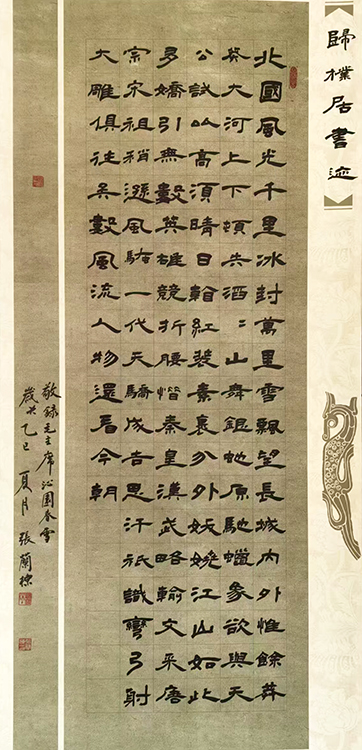 歸樸居書迹
北國風光千里冰封萬里雪飄望長城內外惟餘莽
莽大河上下頓失滔〻山舞銀蛇原馳蠟象欲與天
公試比高須晴日看紅裝素裹分外妖嬈江山如此
多嬌引無數英雄競折腰惜秦皇漢武略輸文采唐
宗宋祖稍遜風騷一代天驕成吉思汗祇識彎弓射
大雕俱往矣數風流人物還看今朝
敬録毛主席沁園春雪
歲次乙巳夏月張蘭